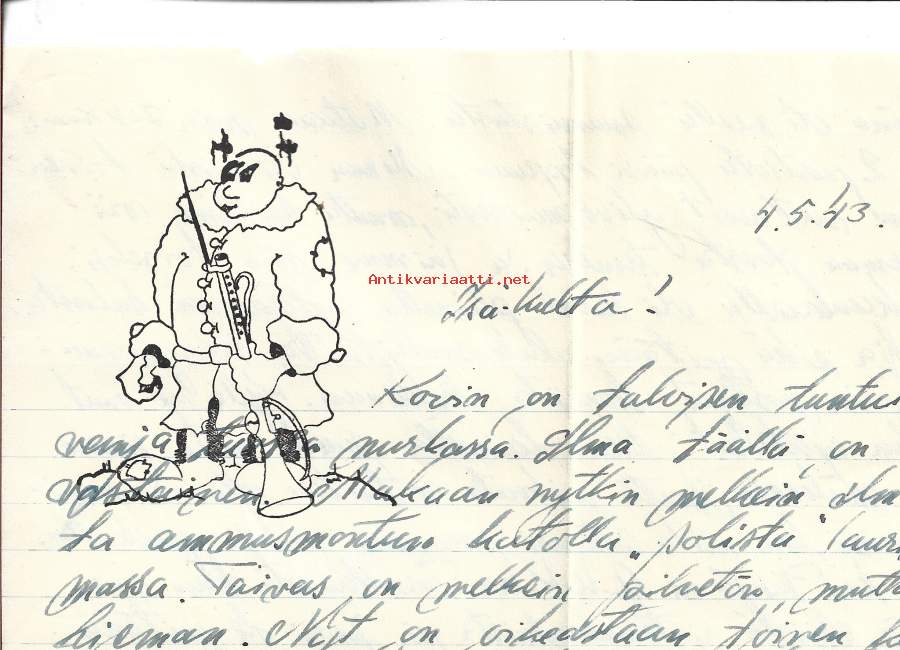 4.5.43.
Antikvariaatti.net
Isä-kulta!
Kovin on talvisen tuntu
vemja nurkassa. Ilma täällä on
Makaan nytkin melkein ilm
ta ammusmontun katolla "solista"
massa. Taivas on melkein pilvetön, mutta
hieman. Nyt on oikeastaan toinen